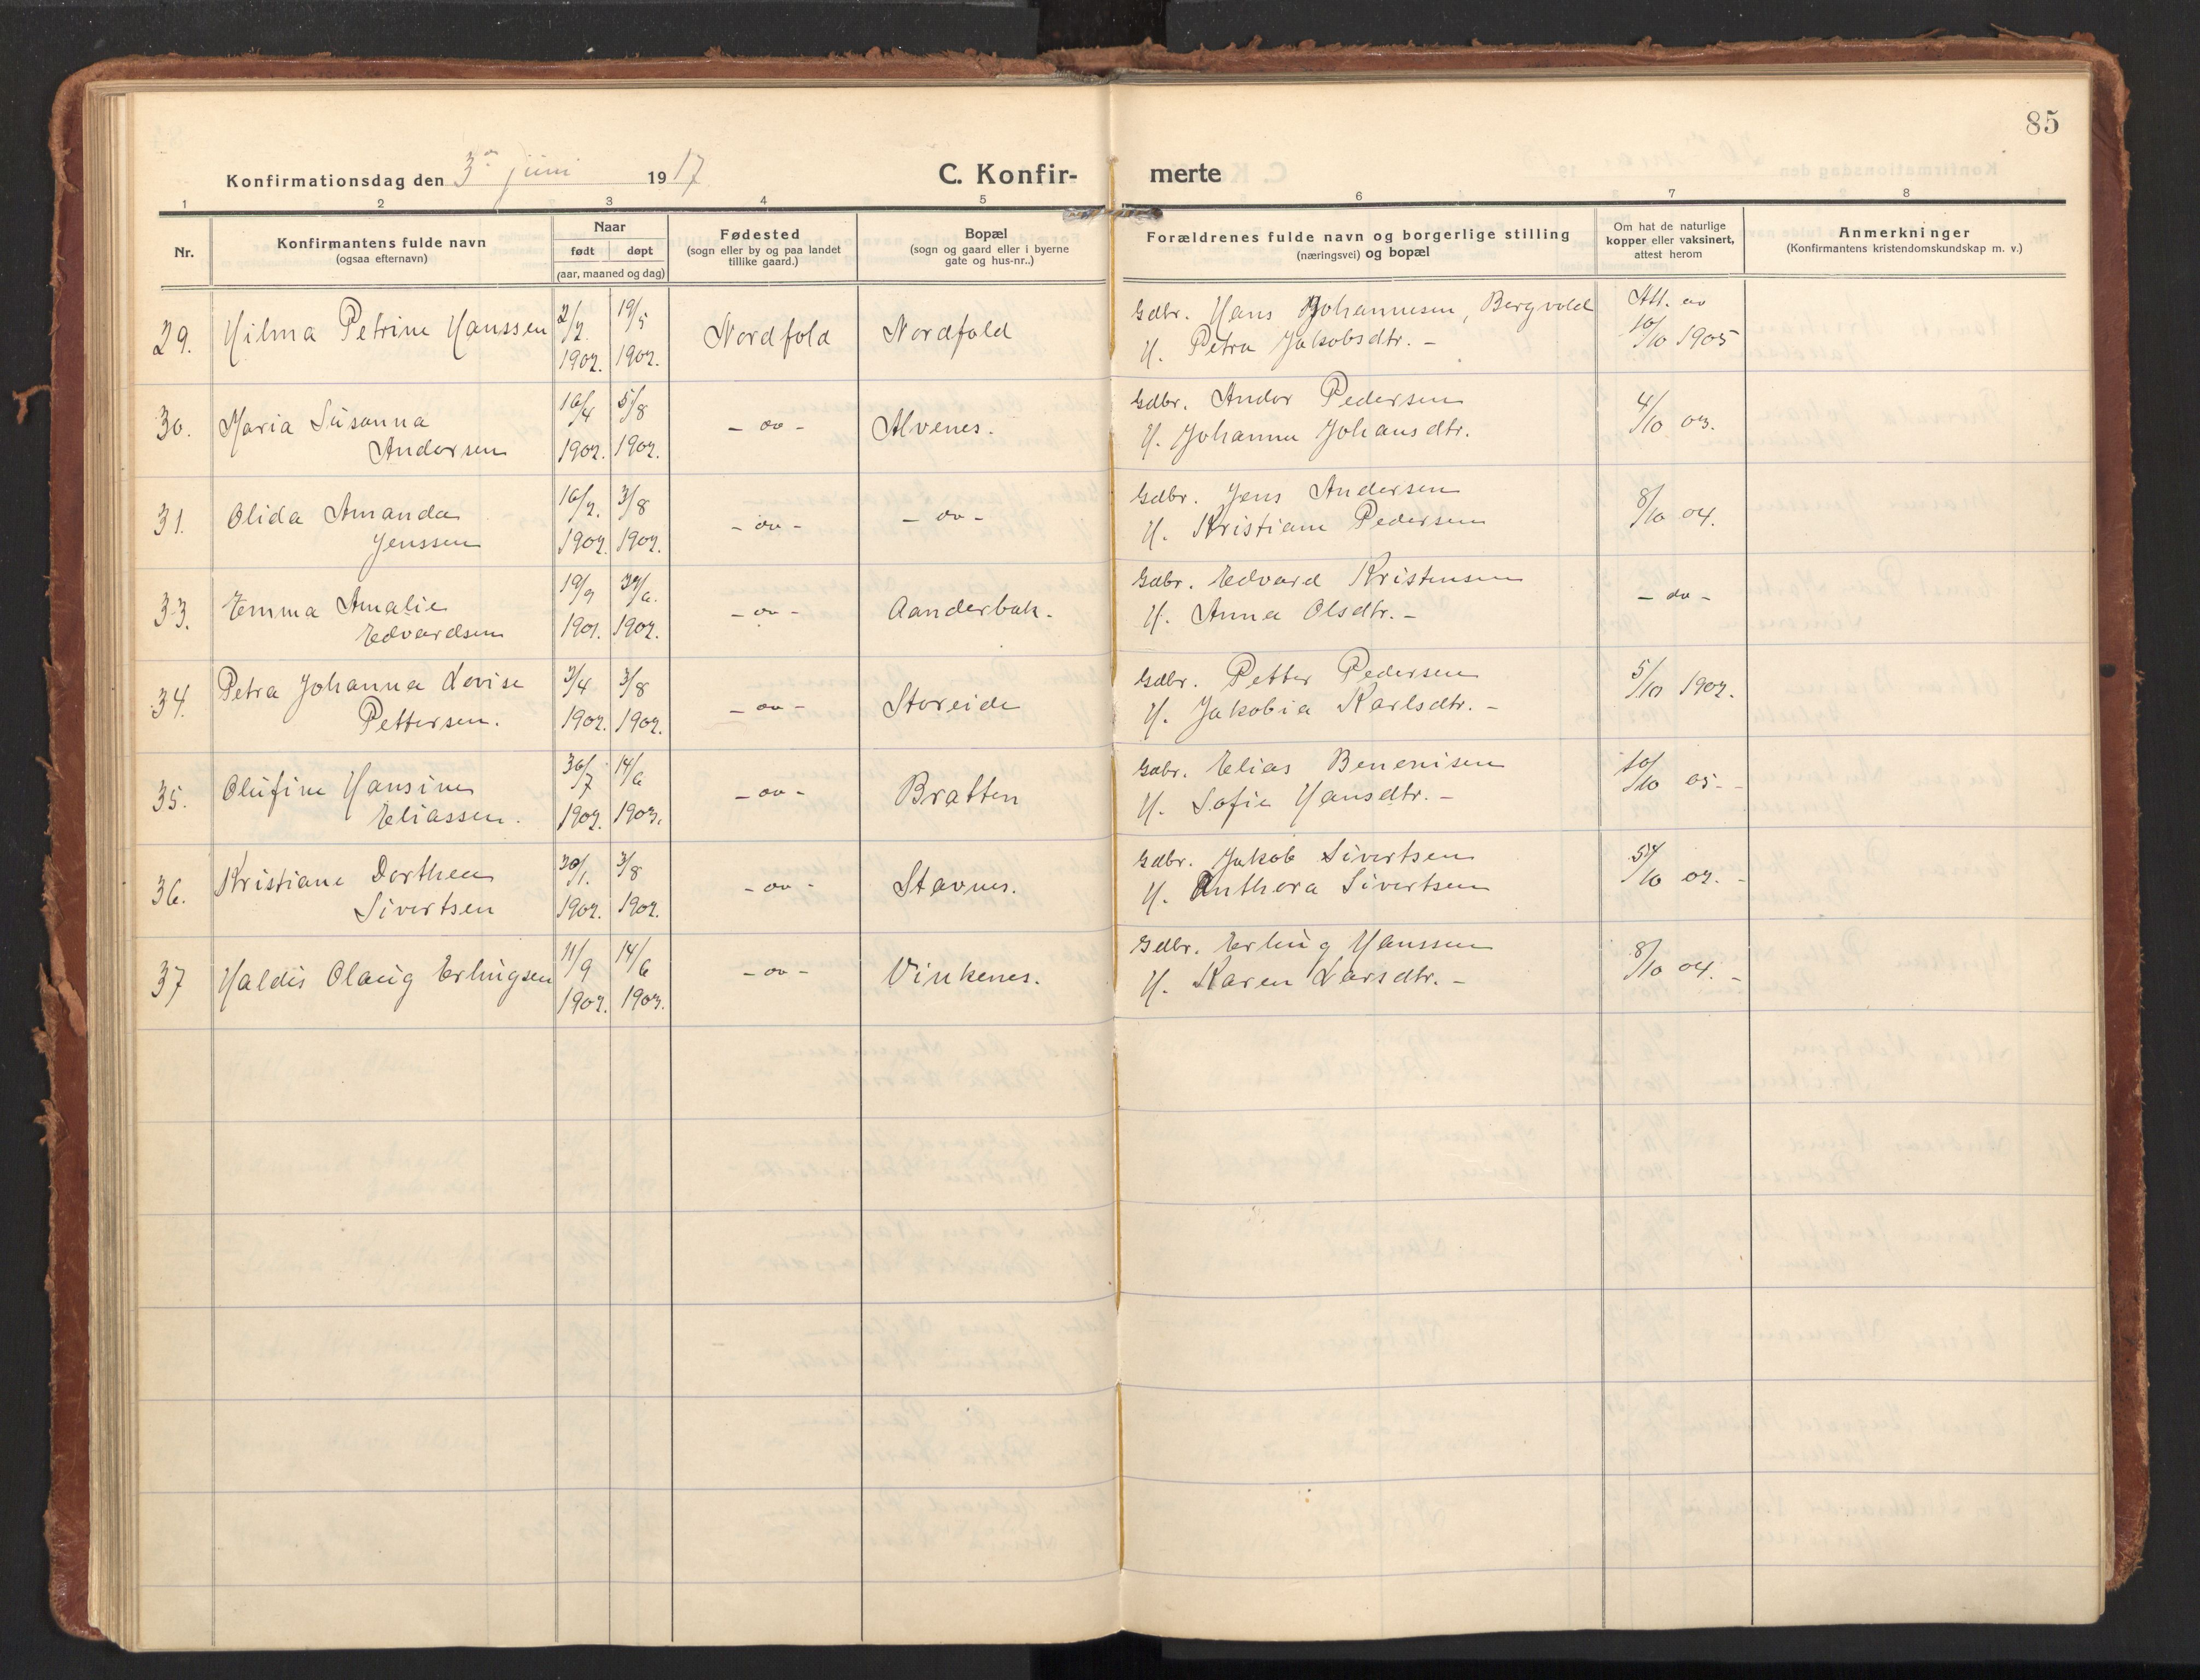 85
Konfirmationsdag den 3 juni 1917
C. Konfir-
merte
1 2 3 4 5 6 7 8
Nr.
Konfirmantens fulde navn
(ogsaa efternavn)
Naar
født døpt
(aar, maaned og dag)
Fødested
(sogn eller by og paa landet
tillike gaard.)
Bopæl
(sogn og gaard eller i byerne
gate og hus-nr..)
Forældrenes fulde navn og borgerlige stilling
(næringsvei) og bopæl
Om hat de naturlige
kopper eller vaksinert,
attest herom
Anmerkninger
(Konfirmantens kristendomskundskap m. v.)
29. Hilma Petrine Hanssen 2/2. 1902. 19/5 1902. Nordfold Nordfold
Gdbr. Hans Johannesen, Bergvold
H. Petra Jakobsdtr. -
Att. av
10/10 1905
30. Maria Susanna
Andorsen
16/4 1902. 5/8 1902. - do - Alvenes.
Gdbr. Andor Pedersen
H. Johanna Johansdtr.
4/10 03.
31. Olida Amanda
Jenssen
16/2. 1902. 3/8 1902. - do - - do -
Gdbr. Jens Andersen
H. Kristiane Pedersen
8/10 04.
33. Emma Amalie
Edvardsen
19/9 1901. /6. 1902. - do - Aanderbak.
Gdbr. Edvard Kristensen
H. Anna Olsdtr. -
- do -
34. Petra Johanna Lovise
Pettersen.
3/4 1902. 3/8 1902. - do - Storeide
Gdbr. Petter Pedersen
H. Jakobia Karlsdtr. -
5/10 1902.
35. Olufine Hansine
Eliassen.
30/7 1902. 14/6 1903. - do - Bratten
Gdbr. Elias Benonisen
H. Sofie Hansdtr. -
10/10 05. -
36. Kristiane Dorthea
Sivertsen
30/1. 1902. 3/8 1902. - do - Stavnes.
Gdbr. Jakob Sivertsen
H. Anthora Sivertsen
/10 02. -
37 Haldis Olaug Erlingsen 11/9 1902. 14/6 1903. - do - Vinkenes.
Gdbr. Erling Hanssen
H. Karen Larsdtr. -
8/10 04. -